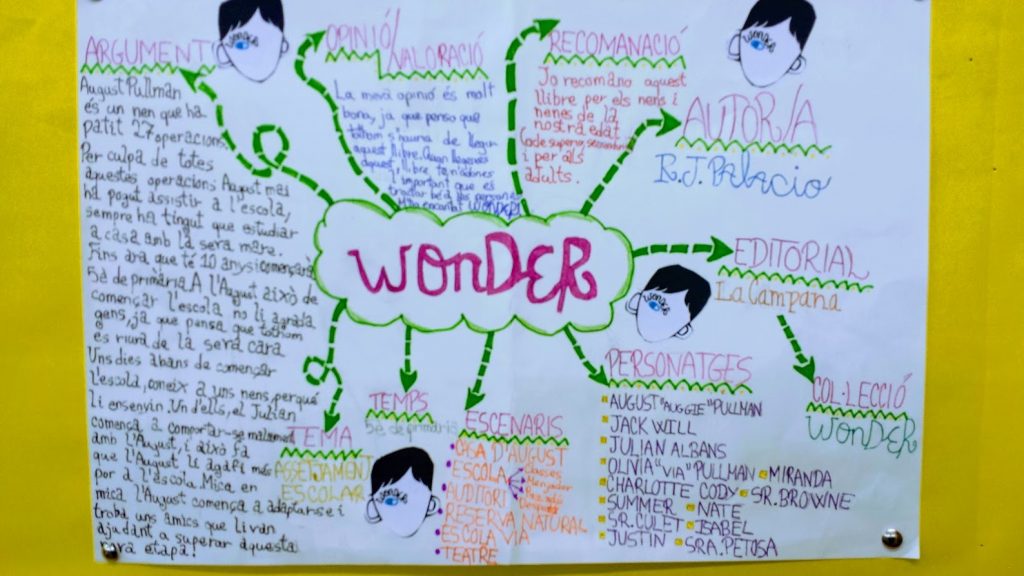 ARGUMENT
August Pullman
és un nen que ha
patit 27 operacions.
Per culpa de totes
aquestes operacions August mai
ha pogut assistir a l'escola,
sempre ha tingut que estudiar
a casa amb la seva mare.
Fins ara que té 10 anys i començarà
5è de primària. A l'August això de
començar l'escola no li agrada
gens, ja que pensa que tothom
es riurà de la seva cara
Uns dies abans de començar
l'escola, coneix a uns nens perquè
li ensenyin. Un d'ells, el Julian
comença a comportar-se malament
amb l'August, i això fa
que l'August li agafi més
por a l'escola. Mica en
mica l'August comença a adaptar-se i
troba uns amics que li van
ajudant a superar aquesta
etapa!
OPINIÓ/
VALORACIÓ
La meva opinió és molt
bona, ja que penso que
tothom s'hauria de llegir
aquest llibre. Quan llegeixes
aquest llibre, te n'adones
l'important que és
tractar bé a les persones
M'ha encantat WONDER!
RECOMANACIÓ
Jo recomano aquest
llibre per els nens i
nenes de la
nostra edat
i per als
adults.
AUTOR/A
R.J. Palacio
WONDER
EDITORIAL
La Campana
COL·LECCIÓ
WONDER
TEMA
ASSETJAMENT
ESCOLAR
TEMPS
5è de primària
ESCENARIS
CASA D'AUGUST
ESCOLA
Classes
Menjador
Pati
AUDITORI
RESERVA NATURAL
ESCOLA VIA
TEATRE
PERSONATGES
AUGUST "AUGGIE" PULLMAN
JACK WILL
JULIAN ALBANS
OLIVIA "VIA" PULLMAN MIRANDA
CHARLOTTE CODY SR. BROWNE
SUMMER NATE
SR. CULET ISABEL
JUSTIN SRA. PETOSA
wonder
wonder
wonder
wonder